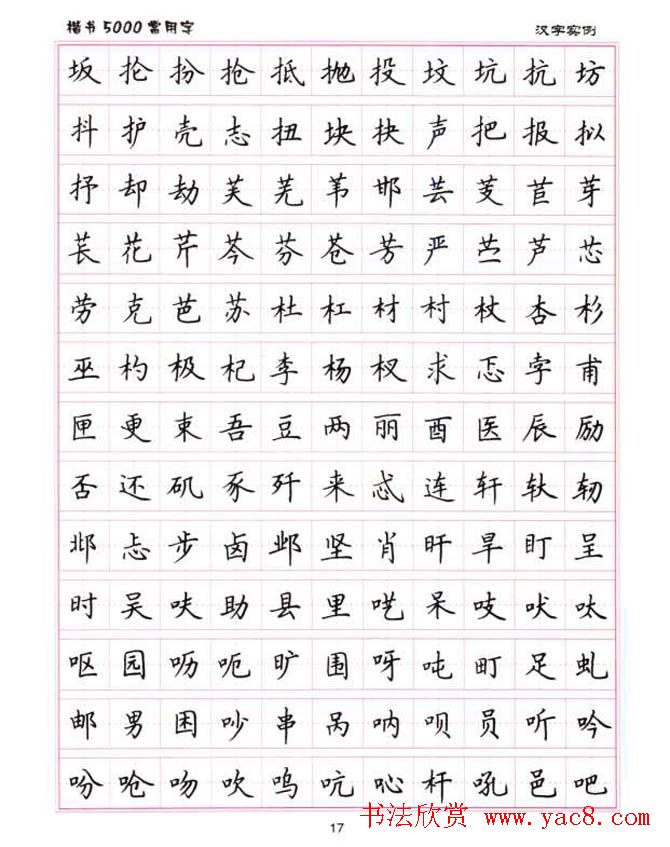 楷书5000常用字 汉字实例
坂抡扮抢抵抛投坟坑抗坊
抖护壳志扭块抉声把报拟
抒却劫芙芜苇邯芸芰苣芽
苌花芹芩芬苍芳严苎芦芯
劳克芭苏杜杠材村杖杏杉
巫杓极杞李杨杈求忑孛甫
匣更束吾豆两丽酉医辰励
否还矶豕歼来忒连轩轪轫
邶忐步卤邺坚肖旰旱盯呈
时吴呋助县里呓呆吱吠呔
呕园呖呃旷围呀吨町足虬
邮男困吵串呙呐呗员听吟
吩呛吻吹呜吭吣杆吼邑吧
17
书法欣赏 www.yac8.com